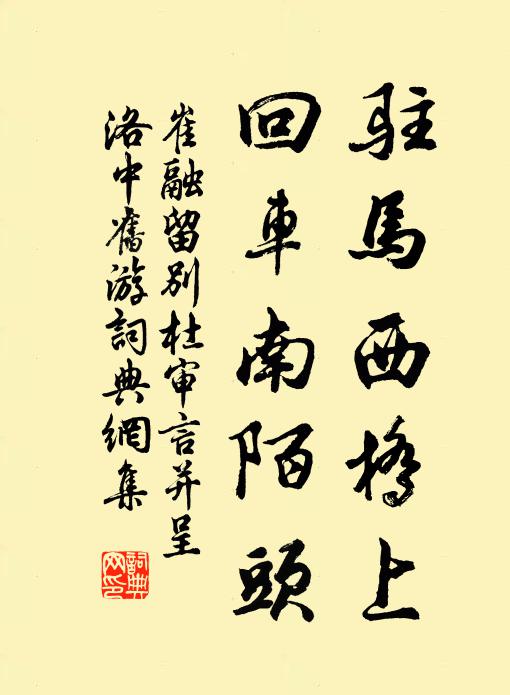 駐馬西橋上
回車南陌頭
崔融留別杜审言并呈
洛中舊游詞典網集
詞典网印